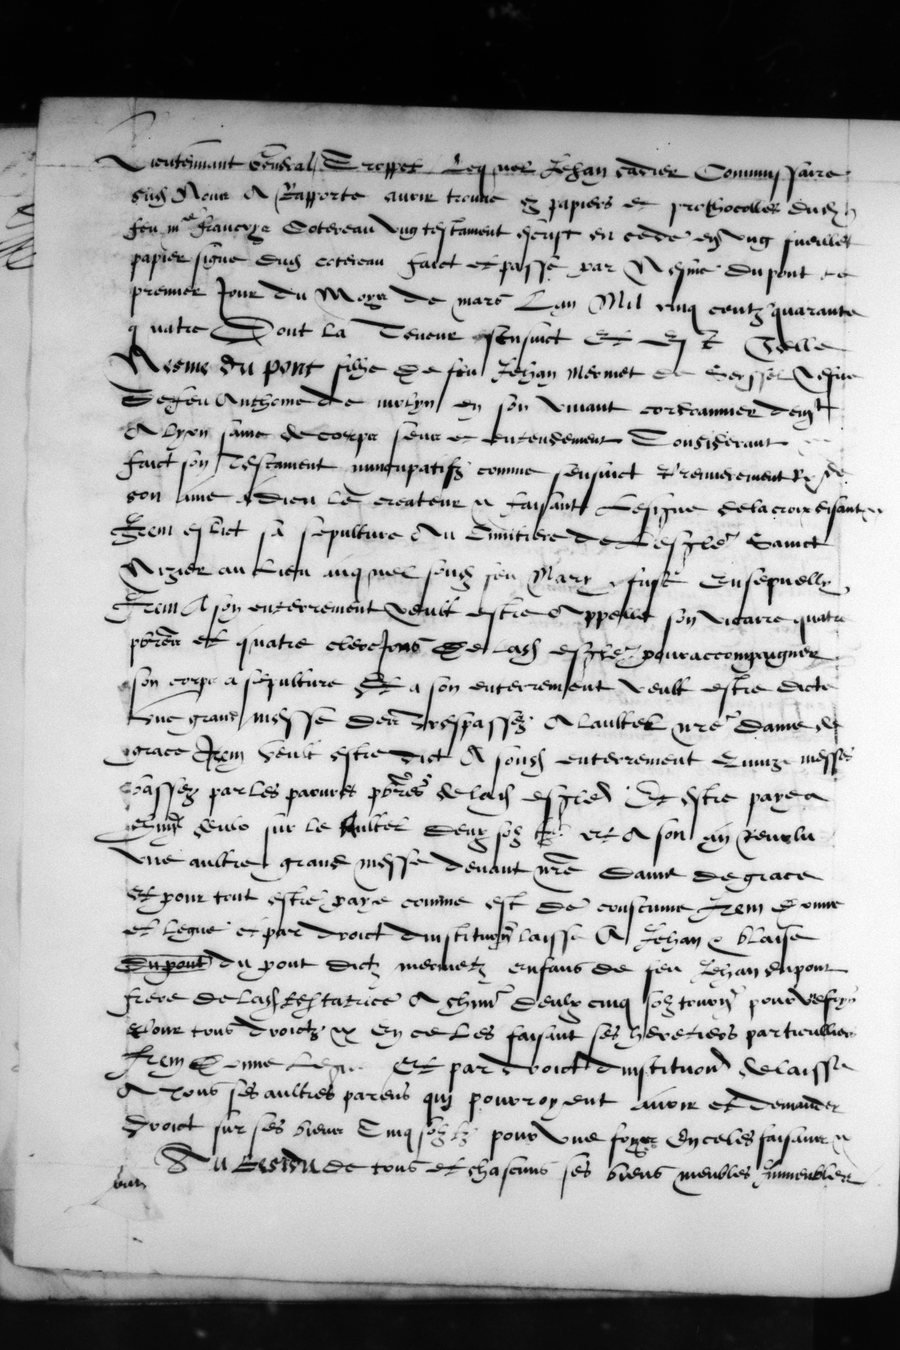 Lieutenant general Lequel Jehan Commissaire
susd Nous A Rapporte avoir trouve es papiers et prothocolles dud
feu me Francoys Cotereau ung testament escript en ung fueillet
papier signe dud cotereau faict et passe par Neyme du pont le
premier Jour du Moys de mars Lan Mil cinq centz quarante
quatre Dont la Teneur sensuict Et Est Telle
Neyme du pont fille De feu Jehan mermet de Seyssel vefve
De feu Anthoine de molyn en son vivant cordoannier demt
A Lyon saine de corps sens et entendement Considerant
faict son Testament nuncupatifz comme sensuict Premierement
son ame A Dieu le createur faisant Le signe de la croix disant
Item eslict sa sepulture Au Cimitiere de Lesglise Sainct
Nizier au Lieu auquel sond feu Mary fust Ensepvelly
Item A son enterrement veult estre Appelle son vicaire quatre
pbres et quatre clerejons De lad esglise pour accompaigner
son corps a sepulture Et a son enterrement veult estre dicte
Une grand messe des trespassez A laultel nre Dame de
grace Item veult estre dict A sond enterrement Quinze messes
basses par les paouvres pbres de lad esglise Et estre paye a
chun deulx sur le Aultel deux solz tz et A son an Revolu
une aultre grand messe devant nre Dame de grace
et pour tout estre paye comme est de coustume Item Donne
et legue et par droict dinstitution laisse A Jehan blaise
du pont du pont dictz mermetz enfans de feu Jehan dupont
frere de lad testatrice A chun deulx cinq solz tourn pour
pour tous droictz En ce les faisant ses heretiers particulliers
Item Donne Legue Et par droict dinstitution delaisse
A Tous ses aultres parens qui pourroyent avoir et demander
droict sur ses biens Cinq solz tz pour une foys En ce les faisant
Au Residu de tous et chascuns ses biens meubles Immeubles